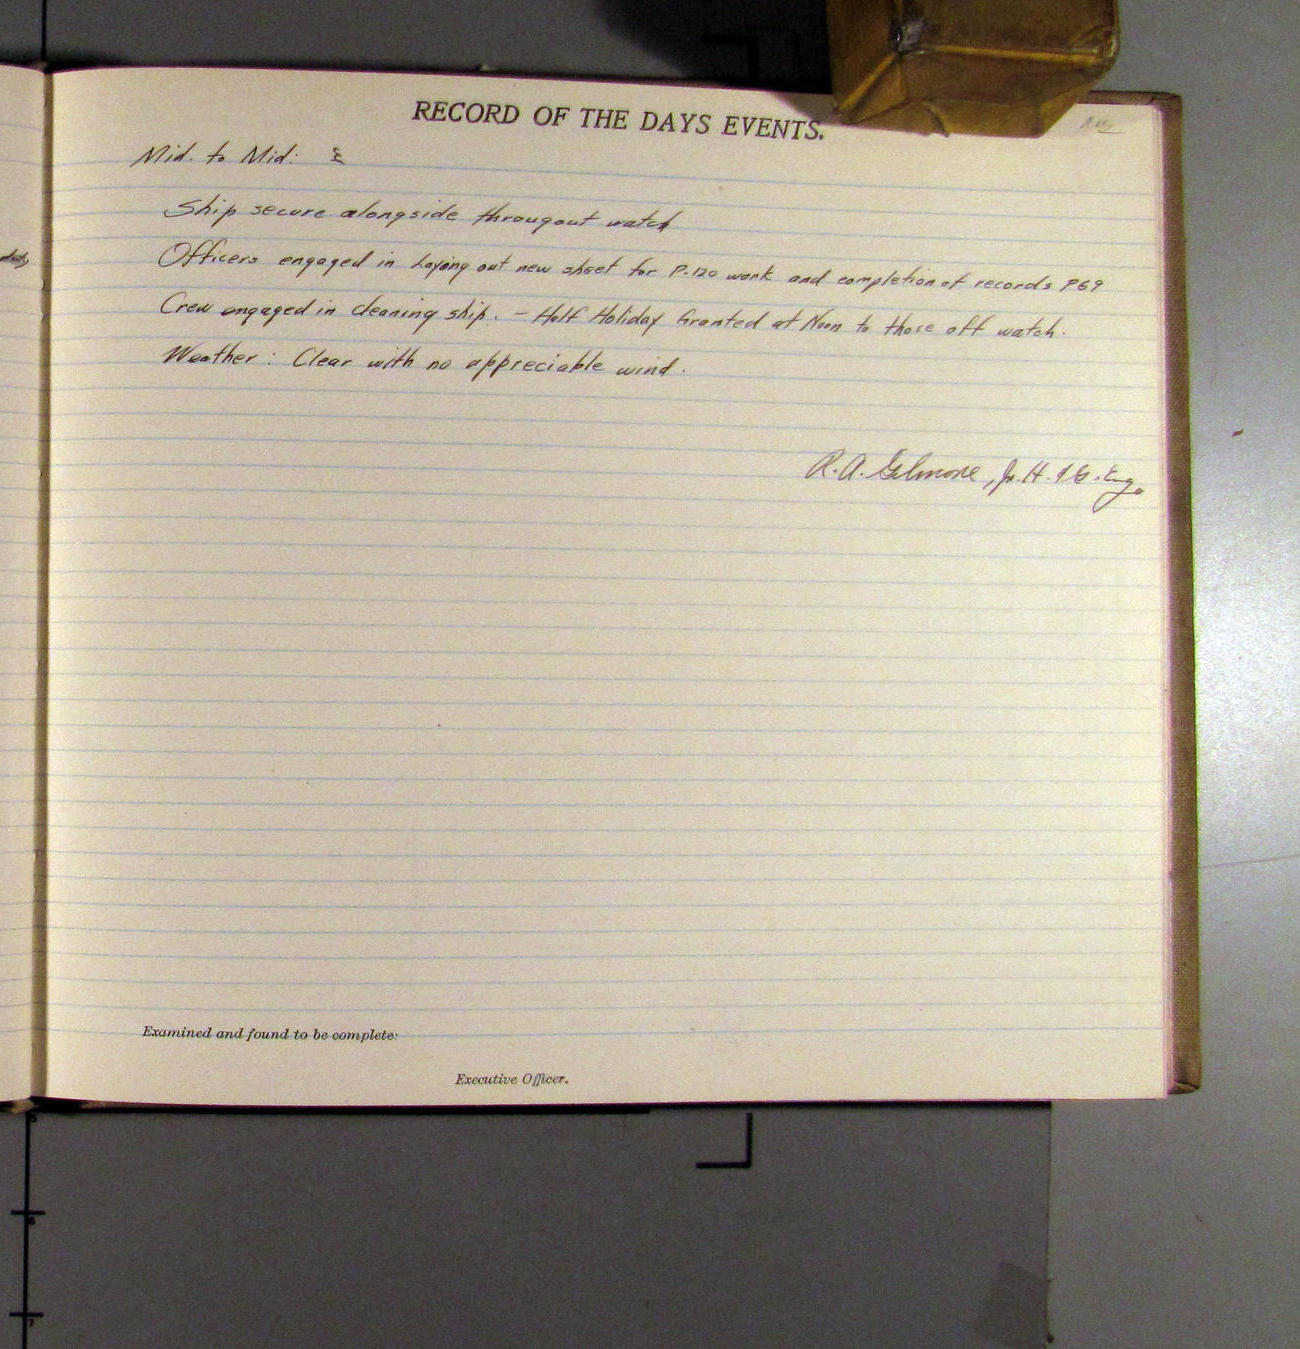 RECORD OF THE DAYS EVENTS.
Mid. to Mid:
Ship secure alongside througout watch
Officers engaged in Laying out new sheet for P-120 work and completion of records P69
Crew engaged in cleaning ship. - Half Holiday Granted at Noon to those off watch.
Weather: Clear with no appreciable wind.
R.A. Gilmore, Jr. H. & G. Eng.
Examined and found to be complete:
Executive Officer.